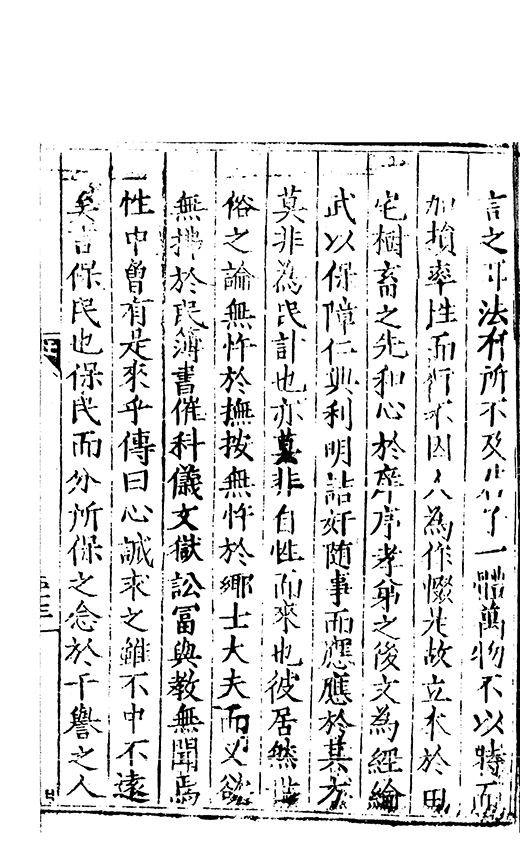 言之耳法有所不及者了一體萬物不以特而
加損率性而行不因人為作惙並故立衣於田
宅樹畜之先和心於庠序孝弟之後文為經綸
武以保障仁興利明詰奸随事而應應於其方
莫非為民計也亦莫非自性而來也彼居然世
俗之論無忤於撫按無忤於鄉士大夫而又欲
無拂於民簿書催科儀文獄訟冨與教無聞焉
一性中曾有是來乎傳曰心誠求之雖不中不遠
矣言保民也保民而分所保之念於干譽之人